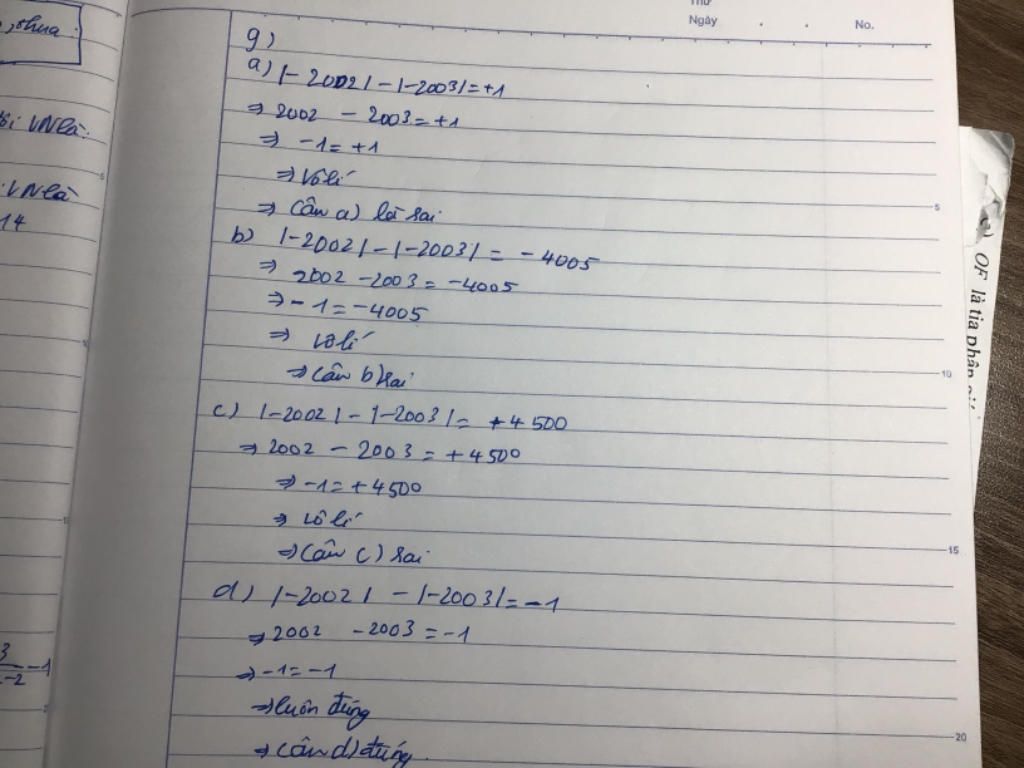 , thua
VN là:
VN là
14
3
-2
-1
Thứ
Ngày . . No.
9)
a) |-2002| - |-2003| = +1
⇒ 2002 - 2003 = +1
⇒ -1 = +1
⇒ Vô lí
⇒ Câu a) là sai
b) |-2002| - |-2003| = -4005
⇒ 2002 - 2003 = -4005
⇒ -1 = -4005
⇒ vô lí
⇒ câu b) sai
c) |-2002| - |-2003| = +4500
⇒ 2002 - 2003 = +4500
⇒ -1 = +4500
⇒ vô lí
⇒ Câu c) sai
d) |-2002| - |-2003| = -1
⇒ 2002 - 2003 = -1
⇒ -1 = -1
⇒ luôn đúng
⇒ Câu d) đúng
5
10
15
20
OF là tia phân